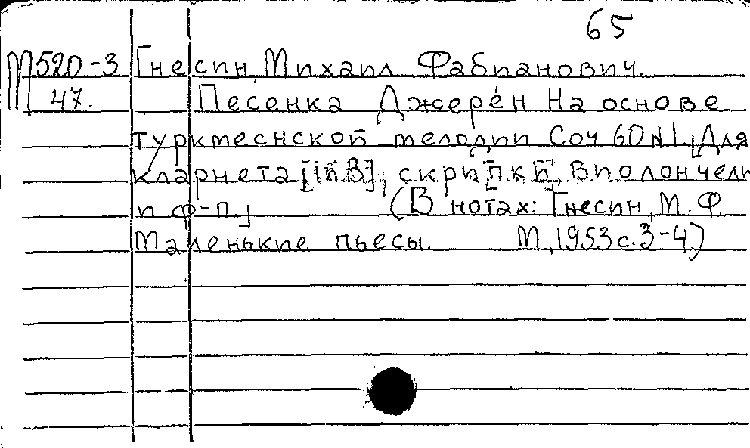 65
М520-3 Гнесин, Михаил Фабианович.
47. Песенка Джерен На основе
туркменской мелодии Соч 60 №1. [Для
кларнета [in B], скрипки, виолончели
и ф-п.]   (В нотах: Гнесин, М.Ф.
Маленькие пьесы.   М., 1953 с.3-4)